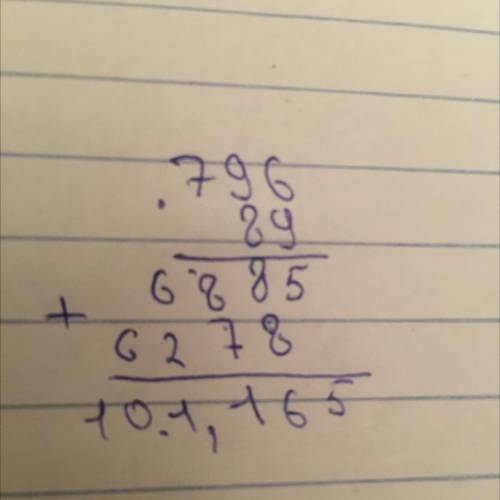 .796
89
6885
+
6278
10.1,165